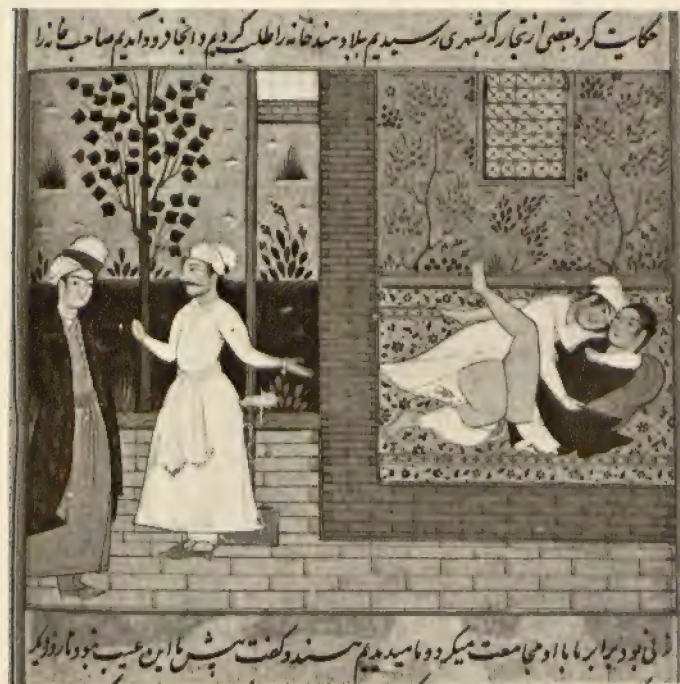 حکایت کرد بعضی از تجار که بشهری رسیدیم ببلاد هند خانه را طلب کردیم و انجا فرود آمدیم صاحب خانه را
زنی بود برابر ما با او مجامعت میکرد و ما میدیدیم و کفت پیش ما این عیب نبود تا روز دیکر